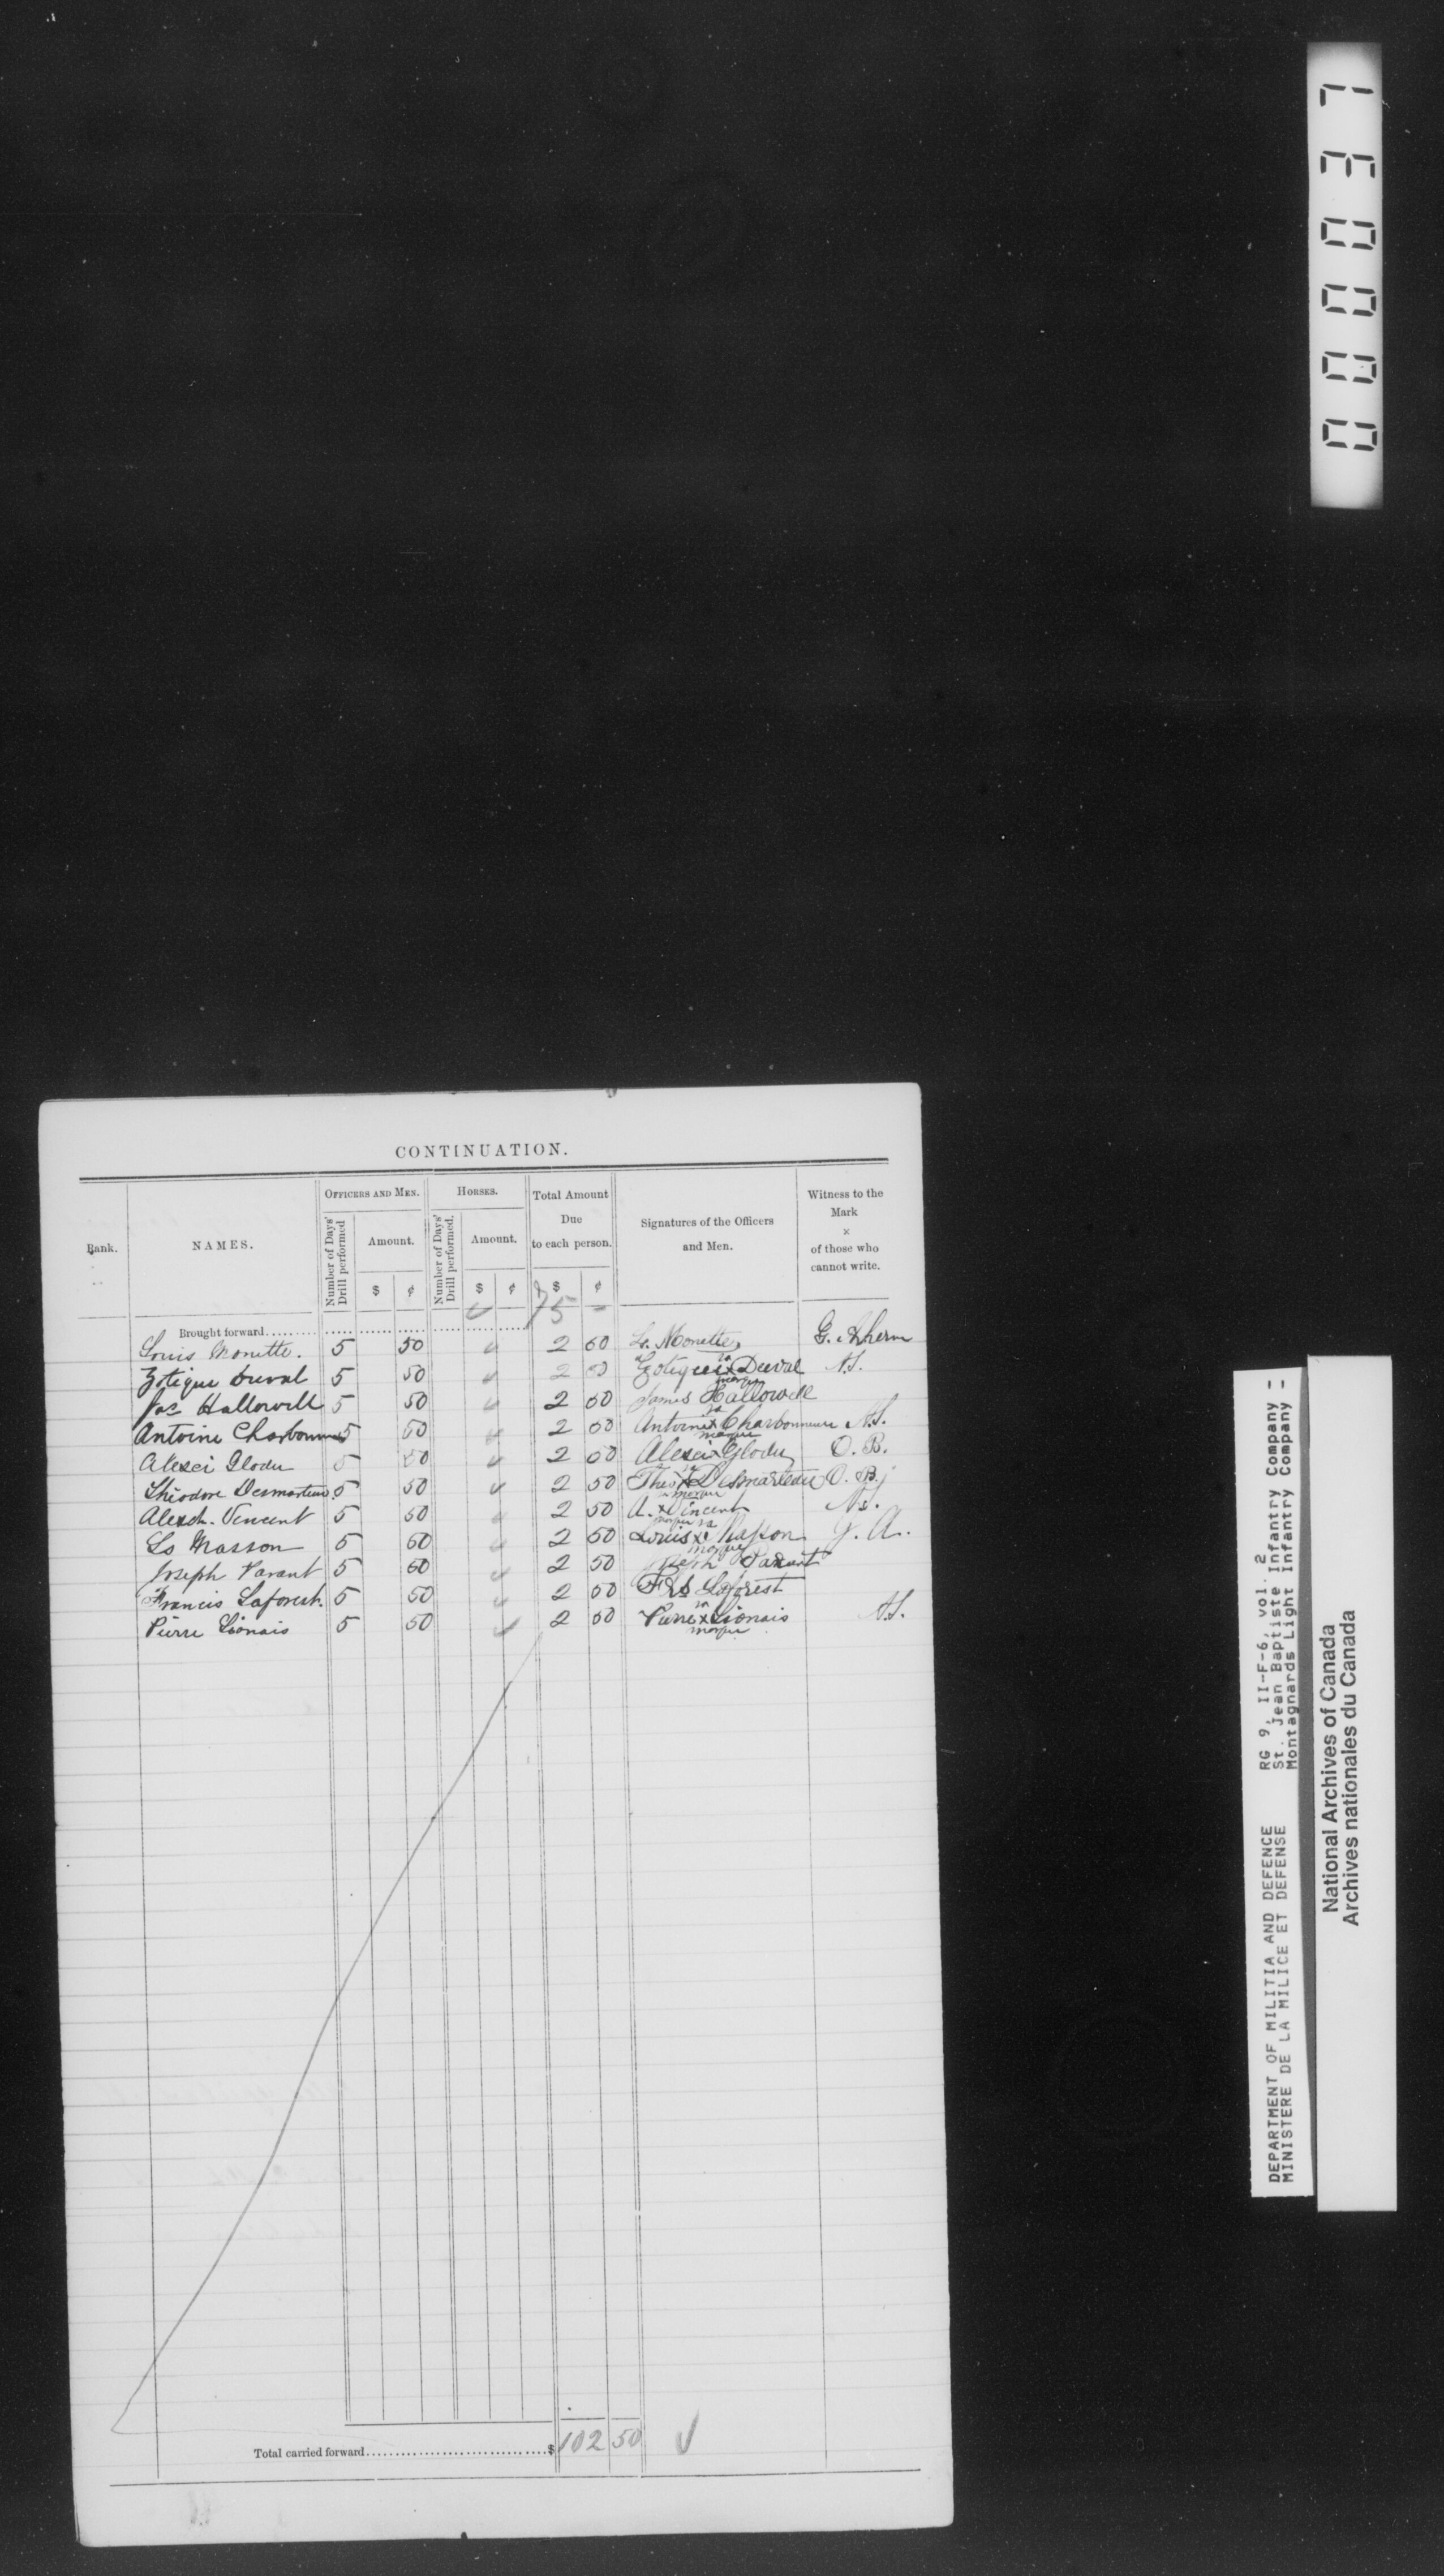 000037
CONTINUATION.
Rank.
NAMES.
OFFICERS AND MEN.
Number of Days' Drill performed
Amount.
$ ¢
HORSES.
Number of Days' Drill performed.
Amount.
$ ¢
Total Amount
Due
to each person.
$ ¢
Signatures of the Officers
and Men.
Witness to the
Mark
×
of those who
cannot write.
Brought forward.......... 75 –
Louis Monette. 5 50 2 50 Ls. Monette, G. Ahhern
Zotique Duval 5 50 2 50 Zotique sa x marque Duval N.S.
Jas Hallowell 5 50 2 50 James Hallowell
Antoine Charbonneau 5 50 2 50 Antoine sa x marque Charbonneau N.S.
Alexci Glodu 5 50 2 50 Alexci x Glodu O. B.
Théodore Desmarteau 5 50 2 50 Théo sa x marque Desmarteau O. B.
Alexch. Vincent 5 50 2 50 A. x Vincent marque N.S.
Ls Masson 5 50 2 50 Louis sa x marque Masson J. A.
Joseph Parant 5 50 2 50 Joseph Parant
Francis Laforest. 5 50 2 50 Frs Laforest
Pierre Lionais 5 50 2 50 Pierre sa x marque Lionais N.S.
Total carried forward.............................$ 102 50
DEPARTMENT OF MILITIA AND DEFENCE RG 9, II-F-6, vol. 2
MINISTERE DE LA MILICE ET DEFENSE St. Jean Baptiste Infantry Company -
Montagnards Light Infantry Company -
National Archives of Canada
Archives nationales du Canada